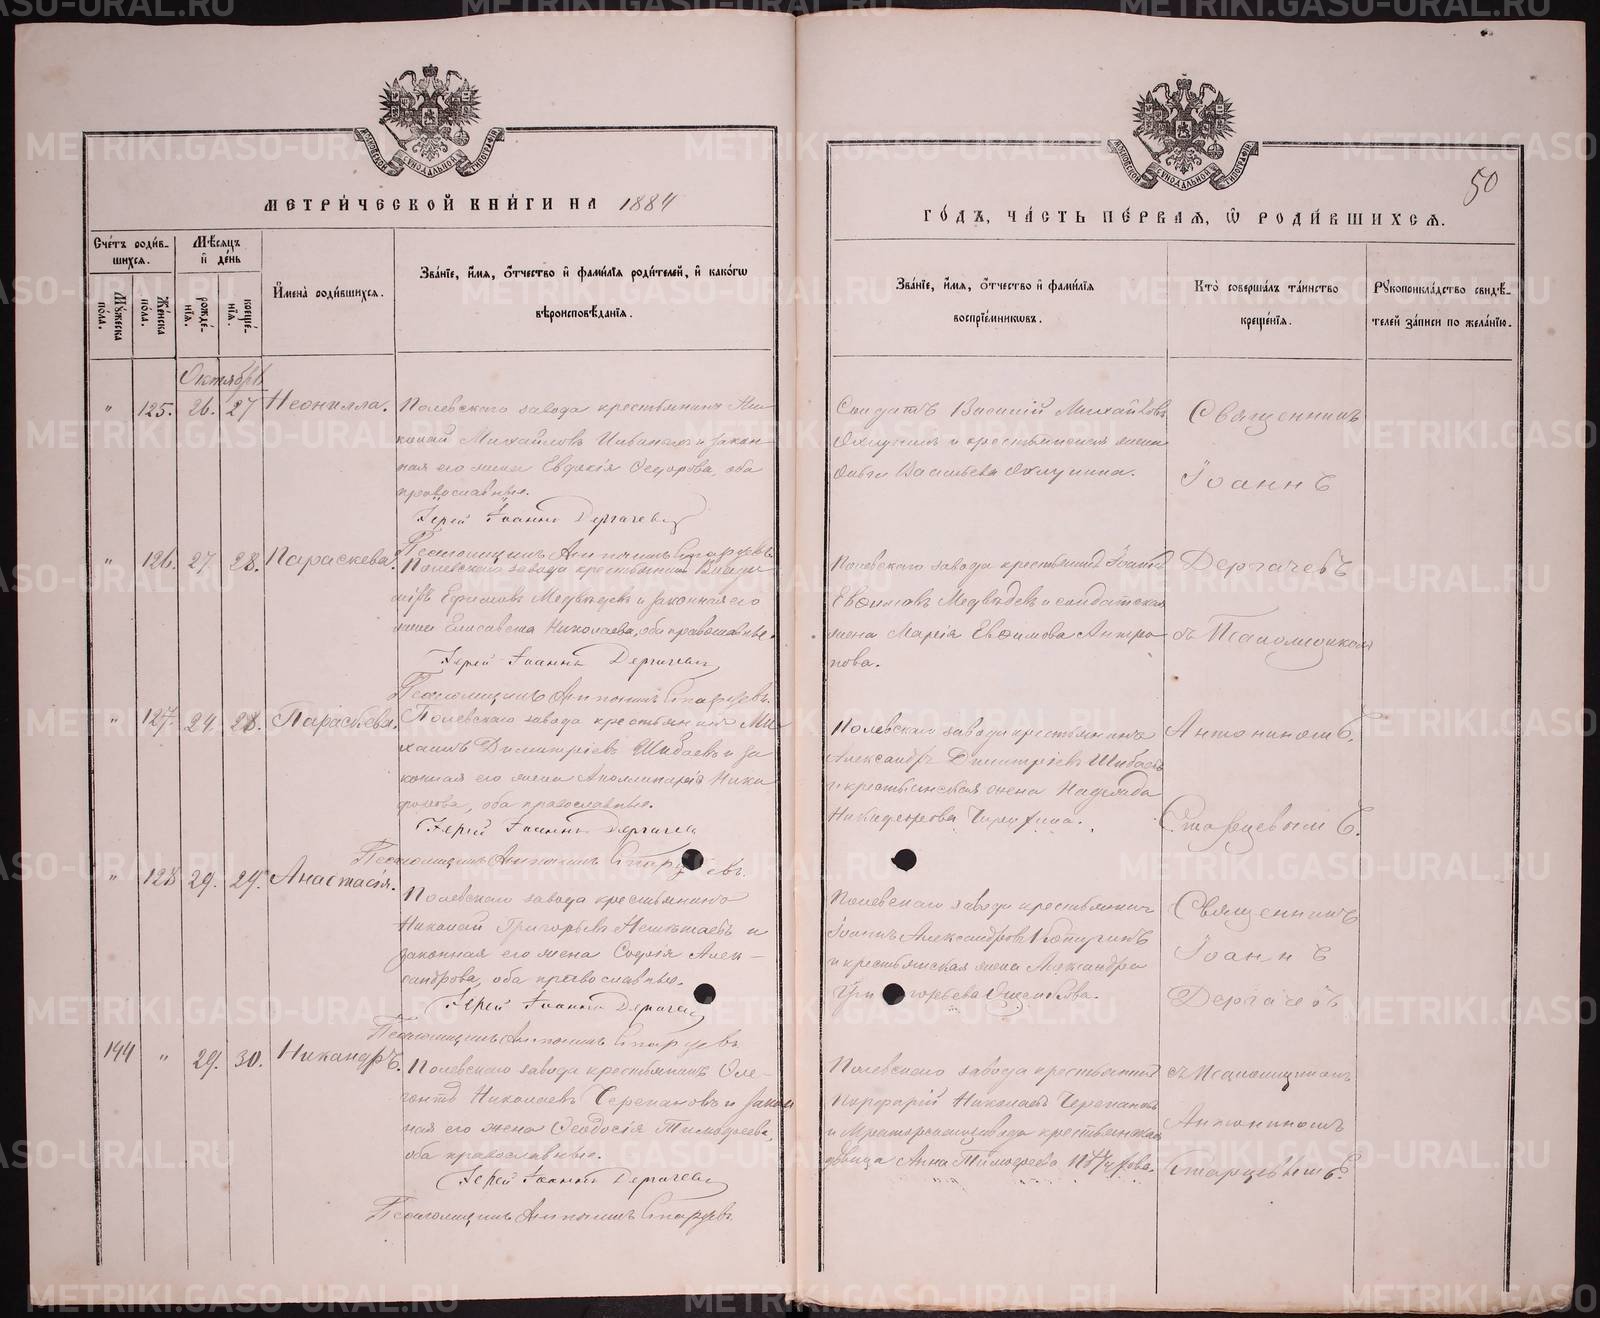 МЕТРИ́ЧЕСКОЙ КНИ́ГИ НА 1884
Сче́тъ роди́в-
шихся.
Мꙋ́жеска
по́ла.
Же́нска
по́ла.
Мѣ́сяцъ
и де́нь
рожде́-
нїя.
креще́-
нїя.
И҆мена̀ роди́вшихся.
Зва́нїе, и҆́мя, ѻ҆́тчество и҆ фами́лїя роди́телей, и҆ како́гѡ
вѣроисповѣ́данїя.
Октябрь
" 125. 26. 27 Неонилла.
Полевскаго завода крестьянинъ Ни-
колай Михайловъ и закон-
ная его жена Евдокія Федорова, оба
православные.
Іерей Іоаннъ Дергачевъ
Псаломщикъ Антонинъ Старцевъ
" 126. 27. 28. Параскева.
Полевскаго завода крестьянинъ Влади-
міръ Ефимовъ Медвѣдевъ и законная его
жена Елисавета Николаева, оба православные.
Іерей Іоаннъ Дергачевъ
Псаломщикъ Антонинъ Старцевъ.
" 127. 27. 28. Параскева.
Полевскаго завода крестьянинъ Ми-
хаилъ Димитріевъ Шибаевъ и за-
конная его жена Аполлинарія Ники-
форова, оба православные.
Іерей Іоаннъ Дергачевъ
Псаломщикъ Антонинъ Старцевъ.
" 128 29. 29. Анастасія.
Полевскаго завода крестьянинъ
Николай Григорьевъ и
законная его жена Софія Алек-
сандрова, оба православные.
Іерей Іоаннъ Дергачевъ
Псаломщикъ Антонинъ Старцевъ.
144 " 29. 30. Никандръ.
Полевскаго завода крестьянинъ Ѳле-
гонтъ Николаевъ Черепановъ и закон-
ная его жена Ѳеодосія Тимофеева,
оба православные.
Іерей Іоаннъ Дергачевъ
Псаломщикъ Антонинъ Старцевъ.
50
ГО́ДЪ, ЧА́СТЬ ПЕ́РВАЯ, Ѡ҆ РОДИ́ВШИХСЯ.
Зва́нїе, и҆́мя, ѻ҆́тчество и҆ фами́лїя
воспрїе́мникѡвъ.
Кто̀ соверша́лъ та́инство
креще́нїя.
Рꙋкоприкла́дство свидѣ́-
телей за́писи по жела́нїю.
Солдатъ Василій Михайловъ
Охлупинъ и крестьянская жена
Ольга Васильева Охлупина.
Священникъ
Іоаннъ
Полевскаго завода крестьянинъ Іоаннъ
Евѳимовъ Медвѣдевъ и солдатская
жена Марія Евѳимова Антро-
пова.
Дергачевъ
съ Псаломщикомъ
Полевскаго завода крестьянинъ
Александръ Димитріевъ Шибаевъ
и крестьянская жена Надежда
Никифорова
Антониномъ
Старцевымъ.
Полевскаго завода крестьянинъ
Іоаннъ Александровъ
и крестьянская жена Александра
Григорьева
Священникъ
Іоаннъ
Дергачевъ
Полевскаго завода крестьянинъ
Порфирій Николаевъ Черепановъ
и Мраморскаго завода крестьянская
дѣвица Анна Тимофеева
съ Псаломщикомъ
Антониномъ
Старцевымъ.
METRIKI.GASO-URAL.RU